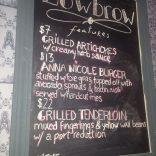 Lowbrow
features
$7
GRILLED ARTICHOKES
w/ creamy herb sauce
$13
ANNA NICOLE BURGER
stuffed w/ foie gras, topped off with
avocado, sprouts & bacon,
served w/ handcut fries
$22
GRILLED TENDERLOIN
mixed fingerlings & yellow wax beans
w/ a port reduction